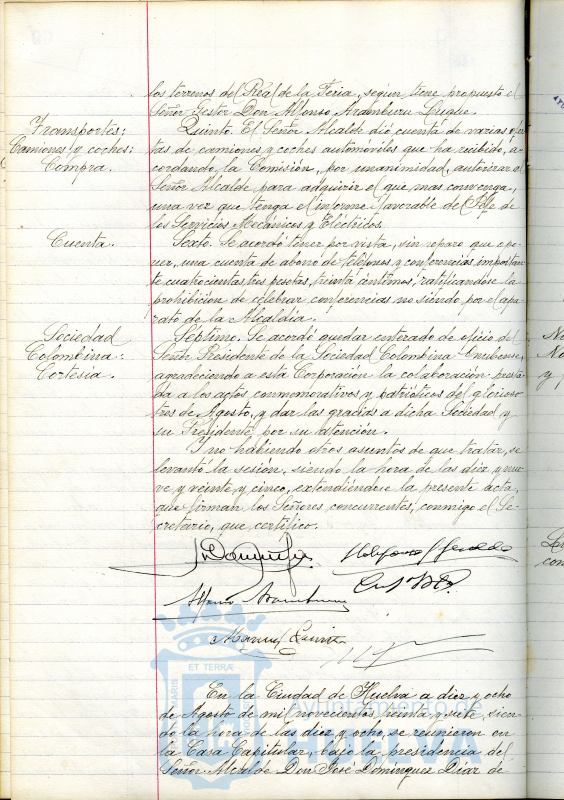 los terrenos del Real de la Feria, según tiene propuesto el
Señor Gestor Don Alfonso Aramburu Luque.
Transportes:
Camiones y coches:
Compra.
Quinto. El Señor Alcalde dió cuenta de varias ofer-
tas de camiones y coches automóviles que ha recibido, a-
cordando la Comisión, por unanimidad, autorizar al
Señor Alcalde para adquirir el que mas convenga,
una vez que tenga el informe favorable del Jefe de
los Servicios Mecánicos y Eléctricos.
Cuenta.
Sexto. Se acordó tener por vista, sin reparo que opo-
ner, una cuenta de abono de teléfonos y conferencias, importan-
te cuatrocientas tres pesetas, treinta céntimos, ratificándose la
prohibición de celebrar conferencias no siendo por el apa-
rato de la Alcaldía.
Sociedad
Colombina:
Cortesía.
Séptimo. Se acordó quedar enterado de oficio del
Señor Presidente de la Sociedad Colombina Onubense,
agradeciendo a esta Corporación la colaboración presta-
da a los actos conmemorativos y patrióticos del glorioso
tres de Agosto, y dar las gracias a dicha Sociedad y
su Presidente por su atención.
Y no habiendo otros asuntos de que tratar, se
levantó la sesión, siendo la hora de las diez y nue-
ve y veinte y cinco, extendiéndose la presente acta,
que firman los Señores concurrentes, conmigo el Se-
cretario, que certifico.
Alfonso Aramburu
Manuel
ET TERRÆ
Ayuntamiento de
HUELVA
En la Ciudad de Huelva a diez y ocho
de Agosto de mil novecientos treinta y siete, sien-
do la hora de las diez y ocho, se reunieron en
la Casa Capitular, bajo la presidencia del
Señor Alcalde Don José Domínguez Díaz de